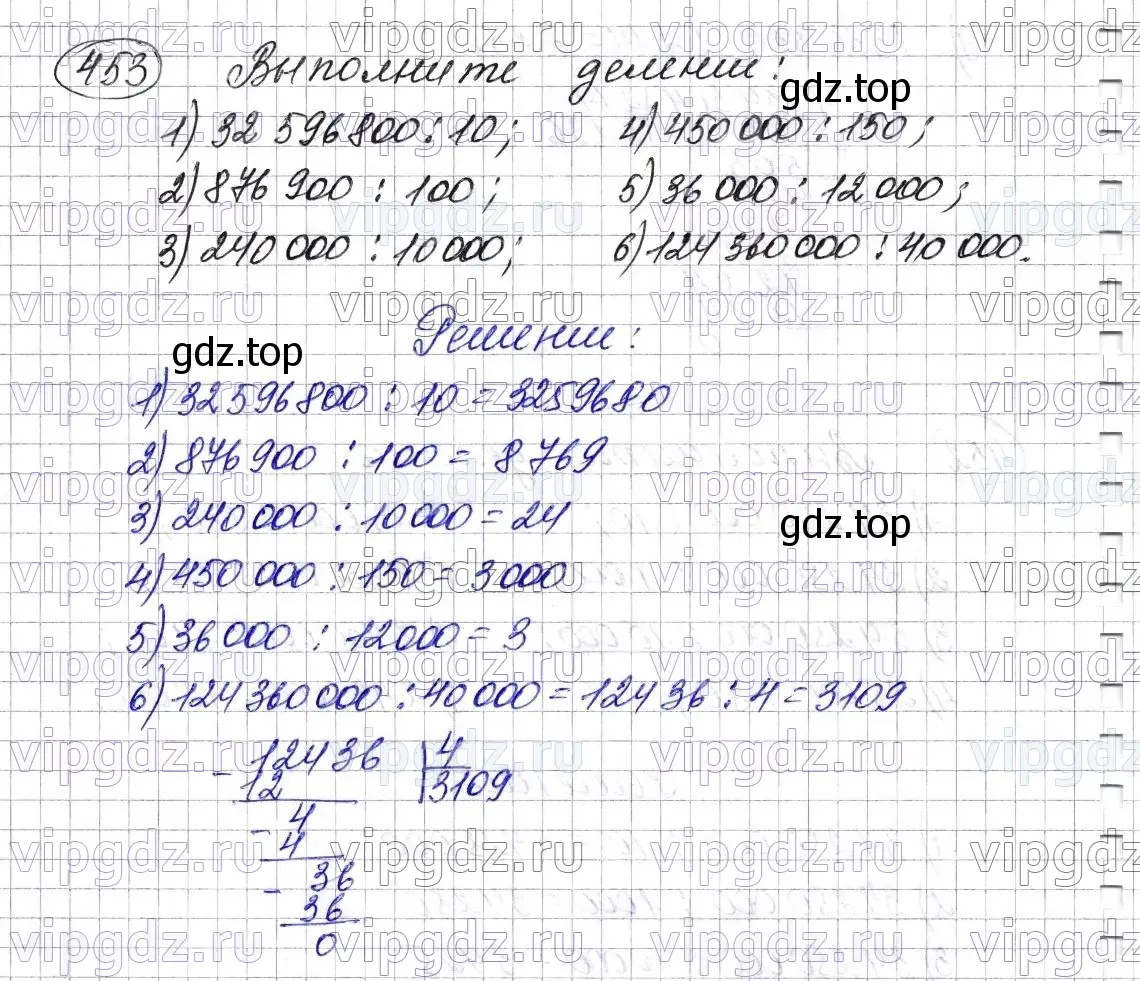 453 Выполните деление:
1) 32 596 800 : 10; 4) 450 000 : 150;
2) 876 900 : 100; 5) 36 000 : 12 000;
3) 240 000 : 10 000; 6) 124 360 000 : 40 000.
Решение:
1) 32 596 800 : 10 = 3259680
2) 876 900 : 100 = 8 769
3) 240 000 : 10 000 = 24
4) 450 000 : 150 = 3 000
5) 36 000 : 12 000 = 3
6) 124 360 000 : 40 000 = 124 36 : 4 = 3109
- 124 36 4
12 3109
- 4
4
- 36
36
0
gdz.top
gdz.top
gdz.top
vipgdz.ru